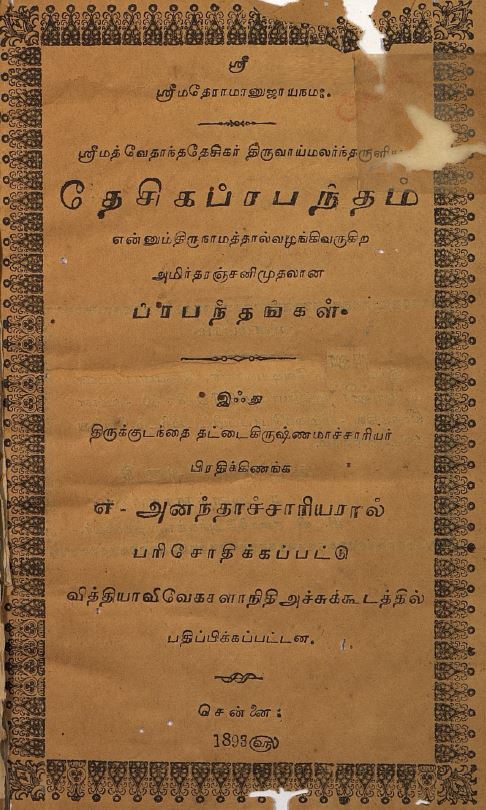 ஸ்ரீ
ஸ்ரீமதேராமாநுஜாயநம:.
ஸ்ரீமத் வேதாந்ததேசிகர் திருவாய்மலர்ந்தருளிய
தேசிகப்ரபந்தம்
என்னும் திருநாமத்தால்வழங்கிவருகிற
அமிர்தரஞ்சனிமுதலான
ப்ரபந்தங்கள்.
இஃது
திருக்குடந்தை தட்டைகிருஷ்ணமாச்சாரியர்
பிரதிக்கிணங்க
எ - அனந்தாச்சாரியரால்
பரிசோதிக்கப்பட்டு
வித்தியாவிவேகாளாநிதி அச்சுக்கூடத்தில்
பதிப்பிக்கப்பட்டன.
சென்னை:
1893௵